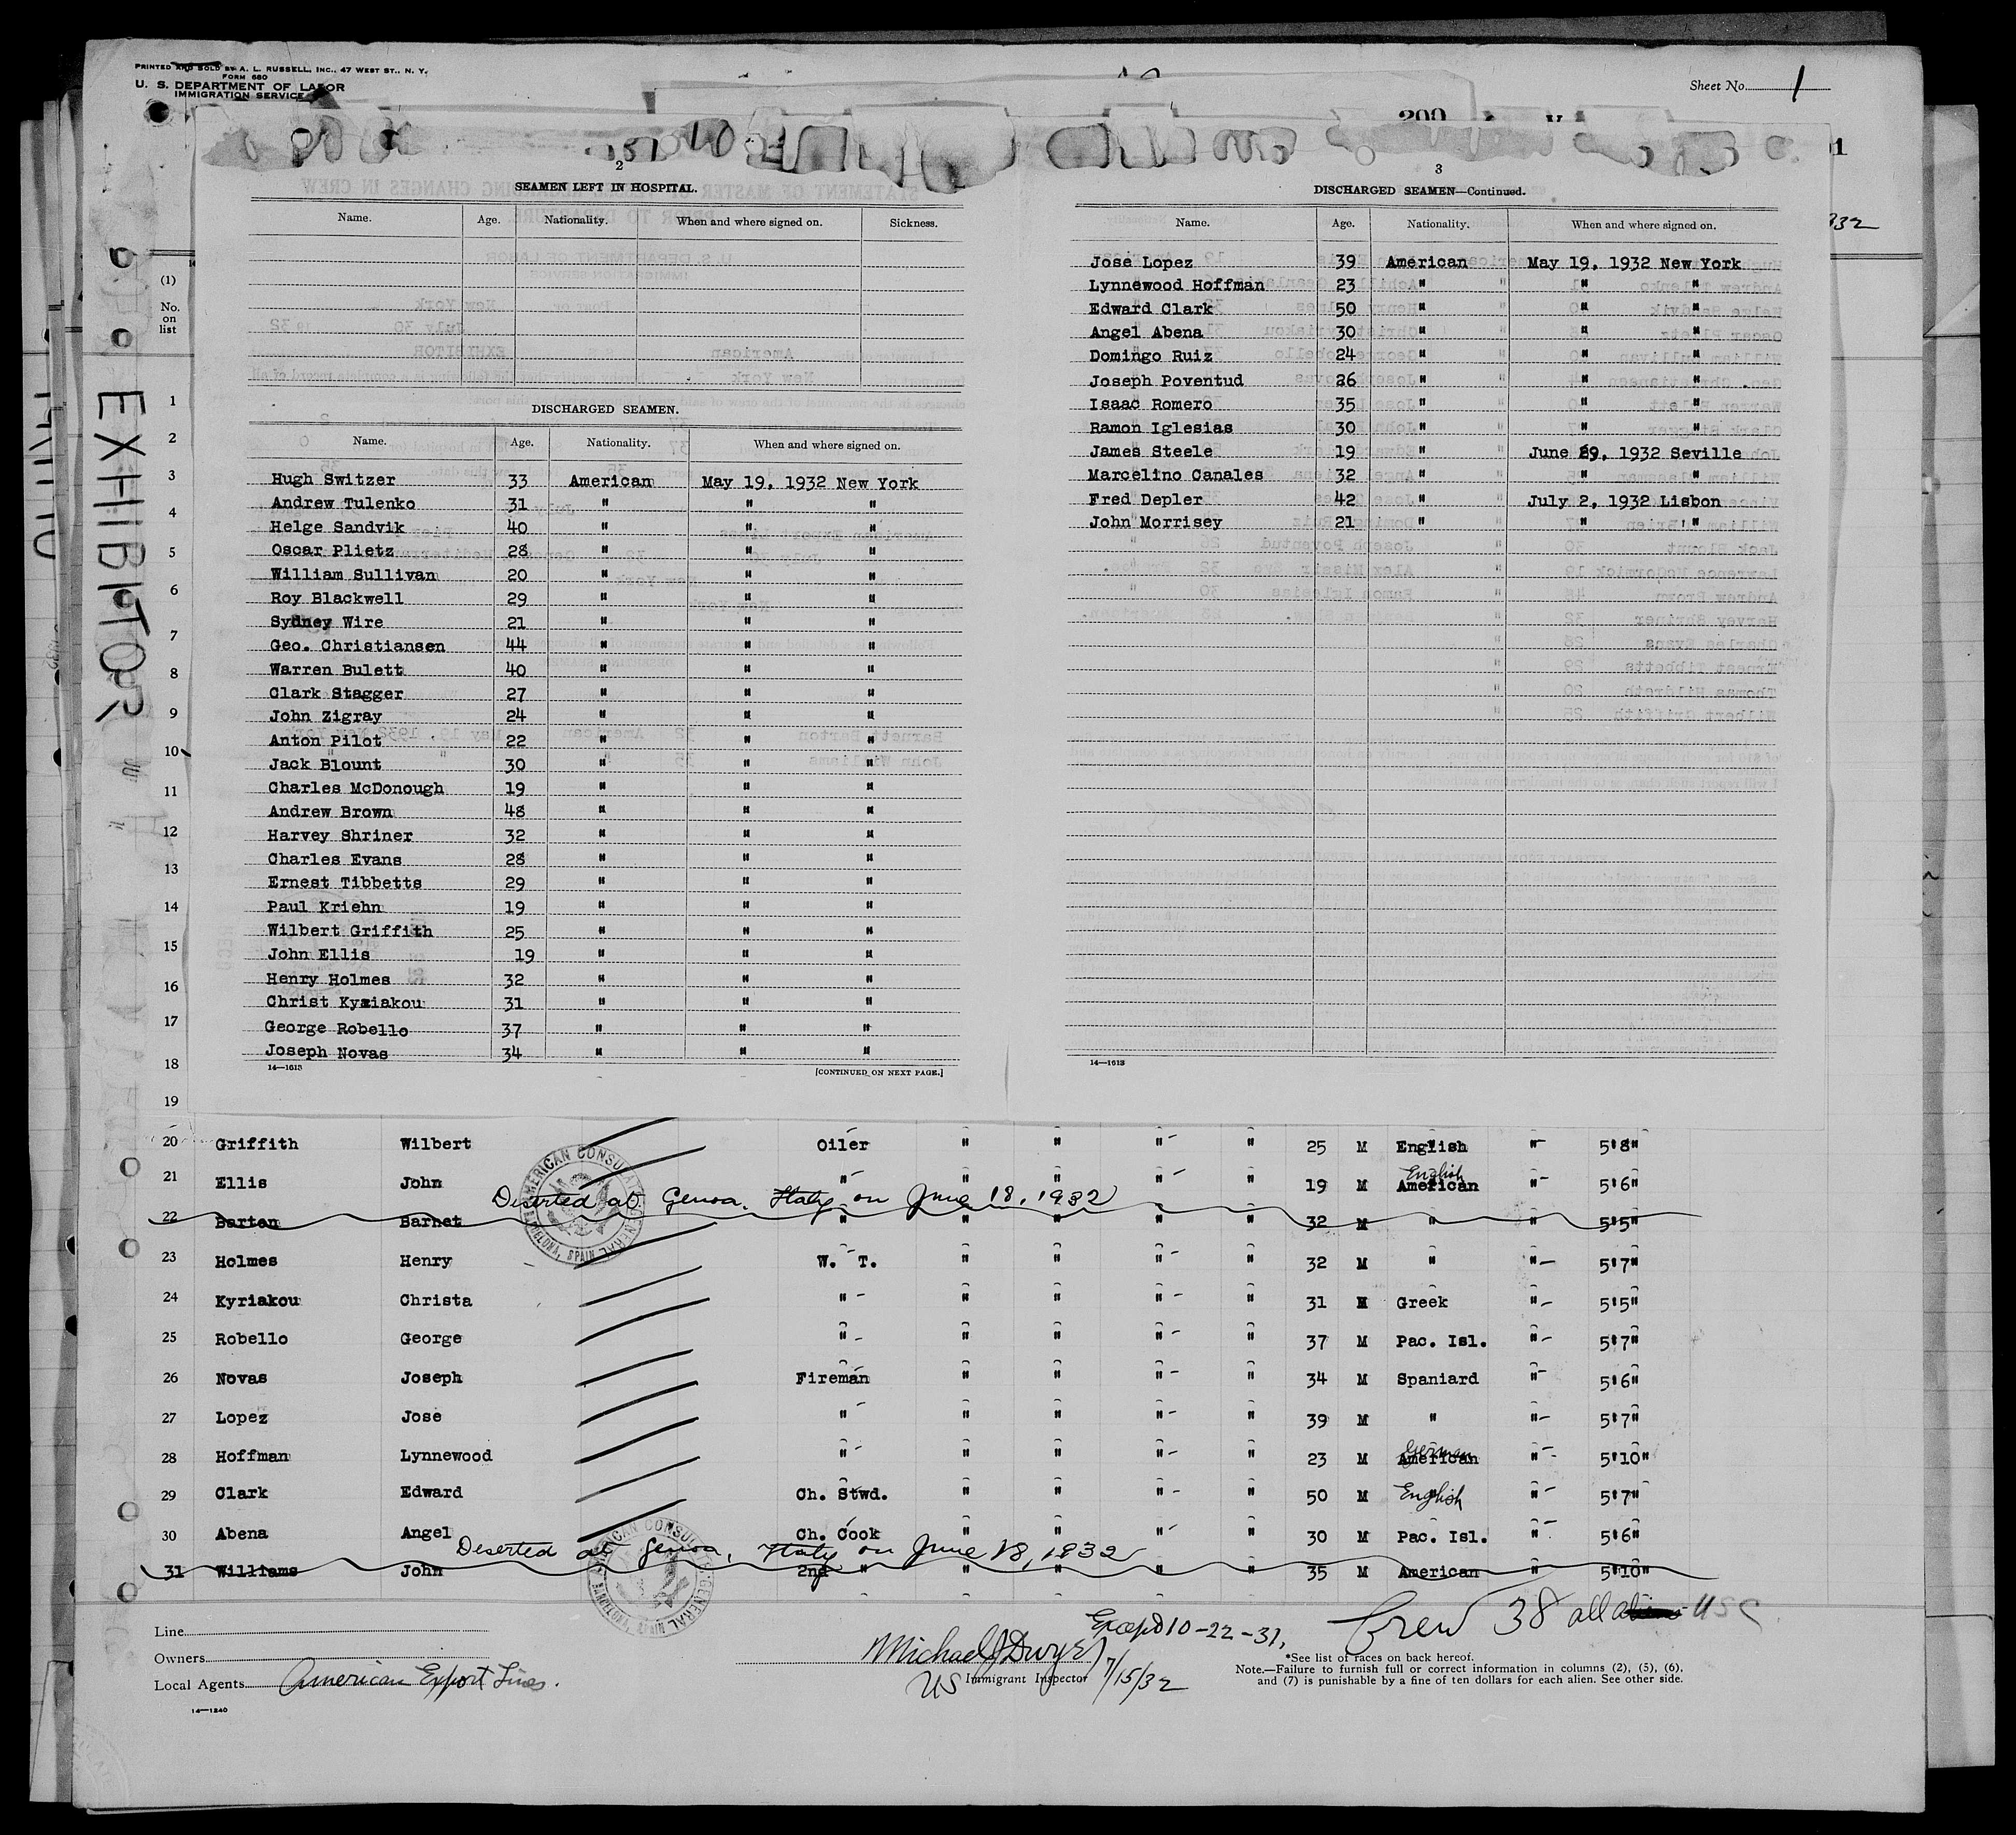 PRINTED AND SOLD BY A. L. RUSSELL, INC., 47 WEST ST., N. Y.
FORM 680
U. S. DEPARTMENT OF LABOR
IMMIGRATION SERVICE
Sheet No. 1
200
EXHIBITOR
(1)
No. on list
2
SEAMEN LEFT IN HOSPITAL.
Name. Age. Nationality. When and where signed on. Sickness.
DISCHARGED SEAMEN.
Name. Age. Nationality. When and where signed on.
Hugh Switzer 33 American May 19, 1932 New York
Andrew Tulenko 31 " " "
Helge Sandvik 40 " " "
Oscar Plietz 28 " " "
William Sullivan 20 " " "
Roy Blackwell 29 " " "
Sydney Wire 21 " " "
Geo. Christiansen 44 " " "
Warren Bulett 40 " " "
Clark Stagger 27 " " "
John Zigray 24 " " "
Anton Pilot 22 " " "
Jack Blount 30 " " "
Charles McDonough 19 " " "
Andrew Brown 48 " " "
Harvey Shriner 32 " " "
Charles Evans 28 " " "
Ernest Tibbetts 29 " " "
Paul Kriehn 19 " " "
Wilbert Griffith 25 " " "
John Ellis 19 " " "
Henry Holmes 32 " " "
Christ Kyriakou 31 " " "
George Robello 37 " " "
Joseph Novas 34 " " "
14—1613 [CONTINUED ON NEXT PAGE.]
3
DISCHARGED SEAMEN—Continued.
Name. Age. Nationality. When and where signed on.
Jose Lopez 39 American May 19, 1932 New York
Lynnewood Hoffman 23 " " "
Edward Clark 50 " " "
Angel Abena 30 " " "
Domingo Ruiz 24 " " "
Joseph Poventud 26 " " "
Isaac Romero 35 " " "
Ramon Iglesias 30 " " "
James Steele 19 " June 29, 1932 Seville
Marcelino Canales 32 " " "
Fred Depler 42 " July 2, 1932 Lisbon
John Morrisey 21 " " "
14—1613
1
2
3
4
5
6
7
8
9
10
11
12
13
14
15
16
17
18
19
20 Griffith Wilbert Oiler " " " " 25 M English " 5'8"
21 Ellis John " " " " " 19 M American English " 5'6"
Deserted at Genoa, Italy on June 18, 1932
22 Barton Barnet " " " " " 32 M " " 5'5"
23 Holmes Henry W. T. " " " " 32 M " " 5'7"
24 Kyriakou Christa " " " " " 31 M Greek " 5'5"
25 Robello George " " " " " 37 M Pac. Isl. " 5'7"
26 Novas Joseph Fireman " " " " 34 M Spaniard " 5'6"
27 Lopez Jose " " " " " 39 M " " 5'7"
28 Hoffman Lynnewood " " " " " 23 M American German " 5'10"
29 Clark Edward Ch. Stwd. " " " " 50 M English " 5'7"
30 Abena Angel Ch. Cook " " " " 30 M Pac. Isl. " 5'6"
Deserted at Genoa, Italy on June 18, 1932
31 Williams John 2nd " " " " " 35 M American " 5'10"
AMERICAN CONSULATE GENERAL
BARCELONA, SPAIN
AMERICAN CONSULATE GENERAL
BARCELONA, SPAIN
Crew 38 all USC
10-22-31,
Line
Owners
Local Agents American Export Lines.
Michael J Dwyer
US Immigrant Inspector 7/15/32
*See list of races on back hereof.
Note.—Failure to furnish full or correct information in columns (2), (5), (6),
and (7) is punishable by a fine of ten dollars for each alien. See other side.
14—1240